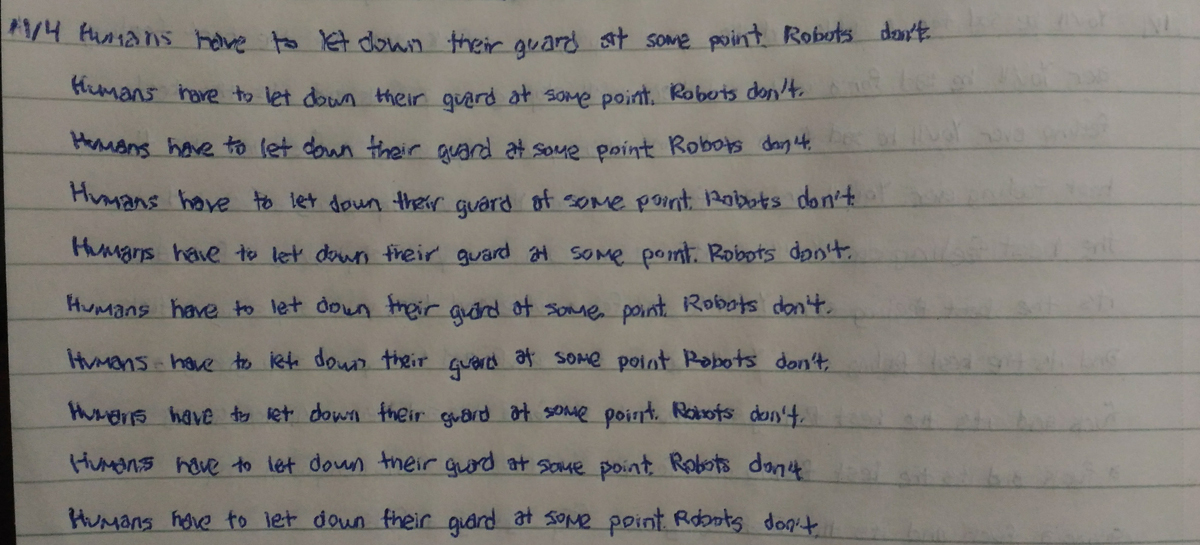 11/4 Humans have to let down their guard at some point. Robots don't.
Humans have to let down their guard at some point. Robots don't.
Humans have to let down their guard at some point Robots don't.
Humans have to let down their guard at some point. Robots don't
Humans have to let down their guard at some point. Robots don't.
Humans have to let down their guard at some point. Robots don't.
Humans have to let down their guard at some point Robots don't.
Humans have to let down their guard at some point. Robots don't.
Humans have to let down their guard at some point. Robots don't
Humans have to let down their guard at some point. Robots don't.